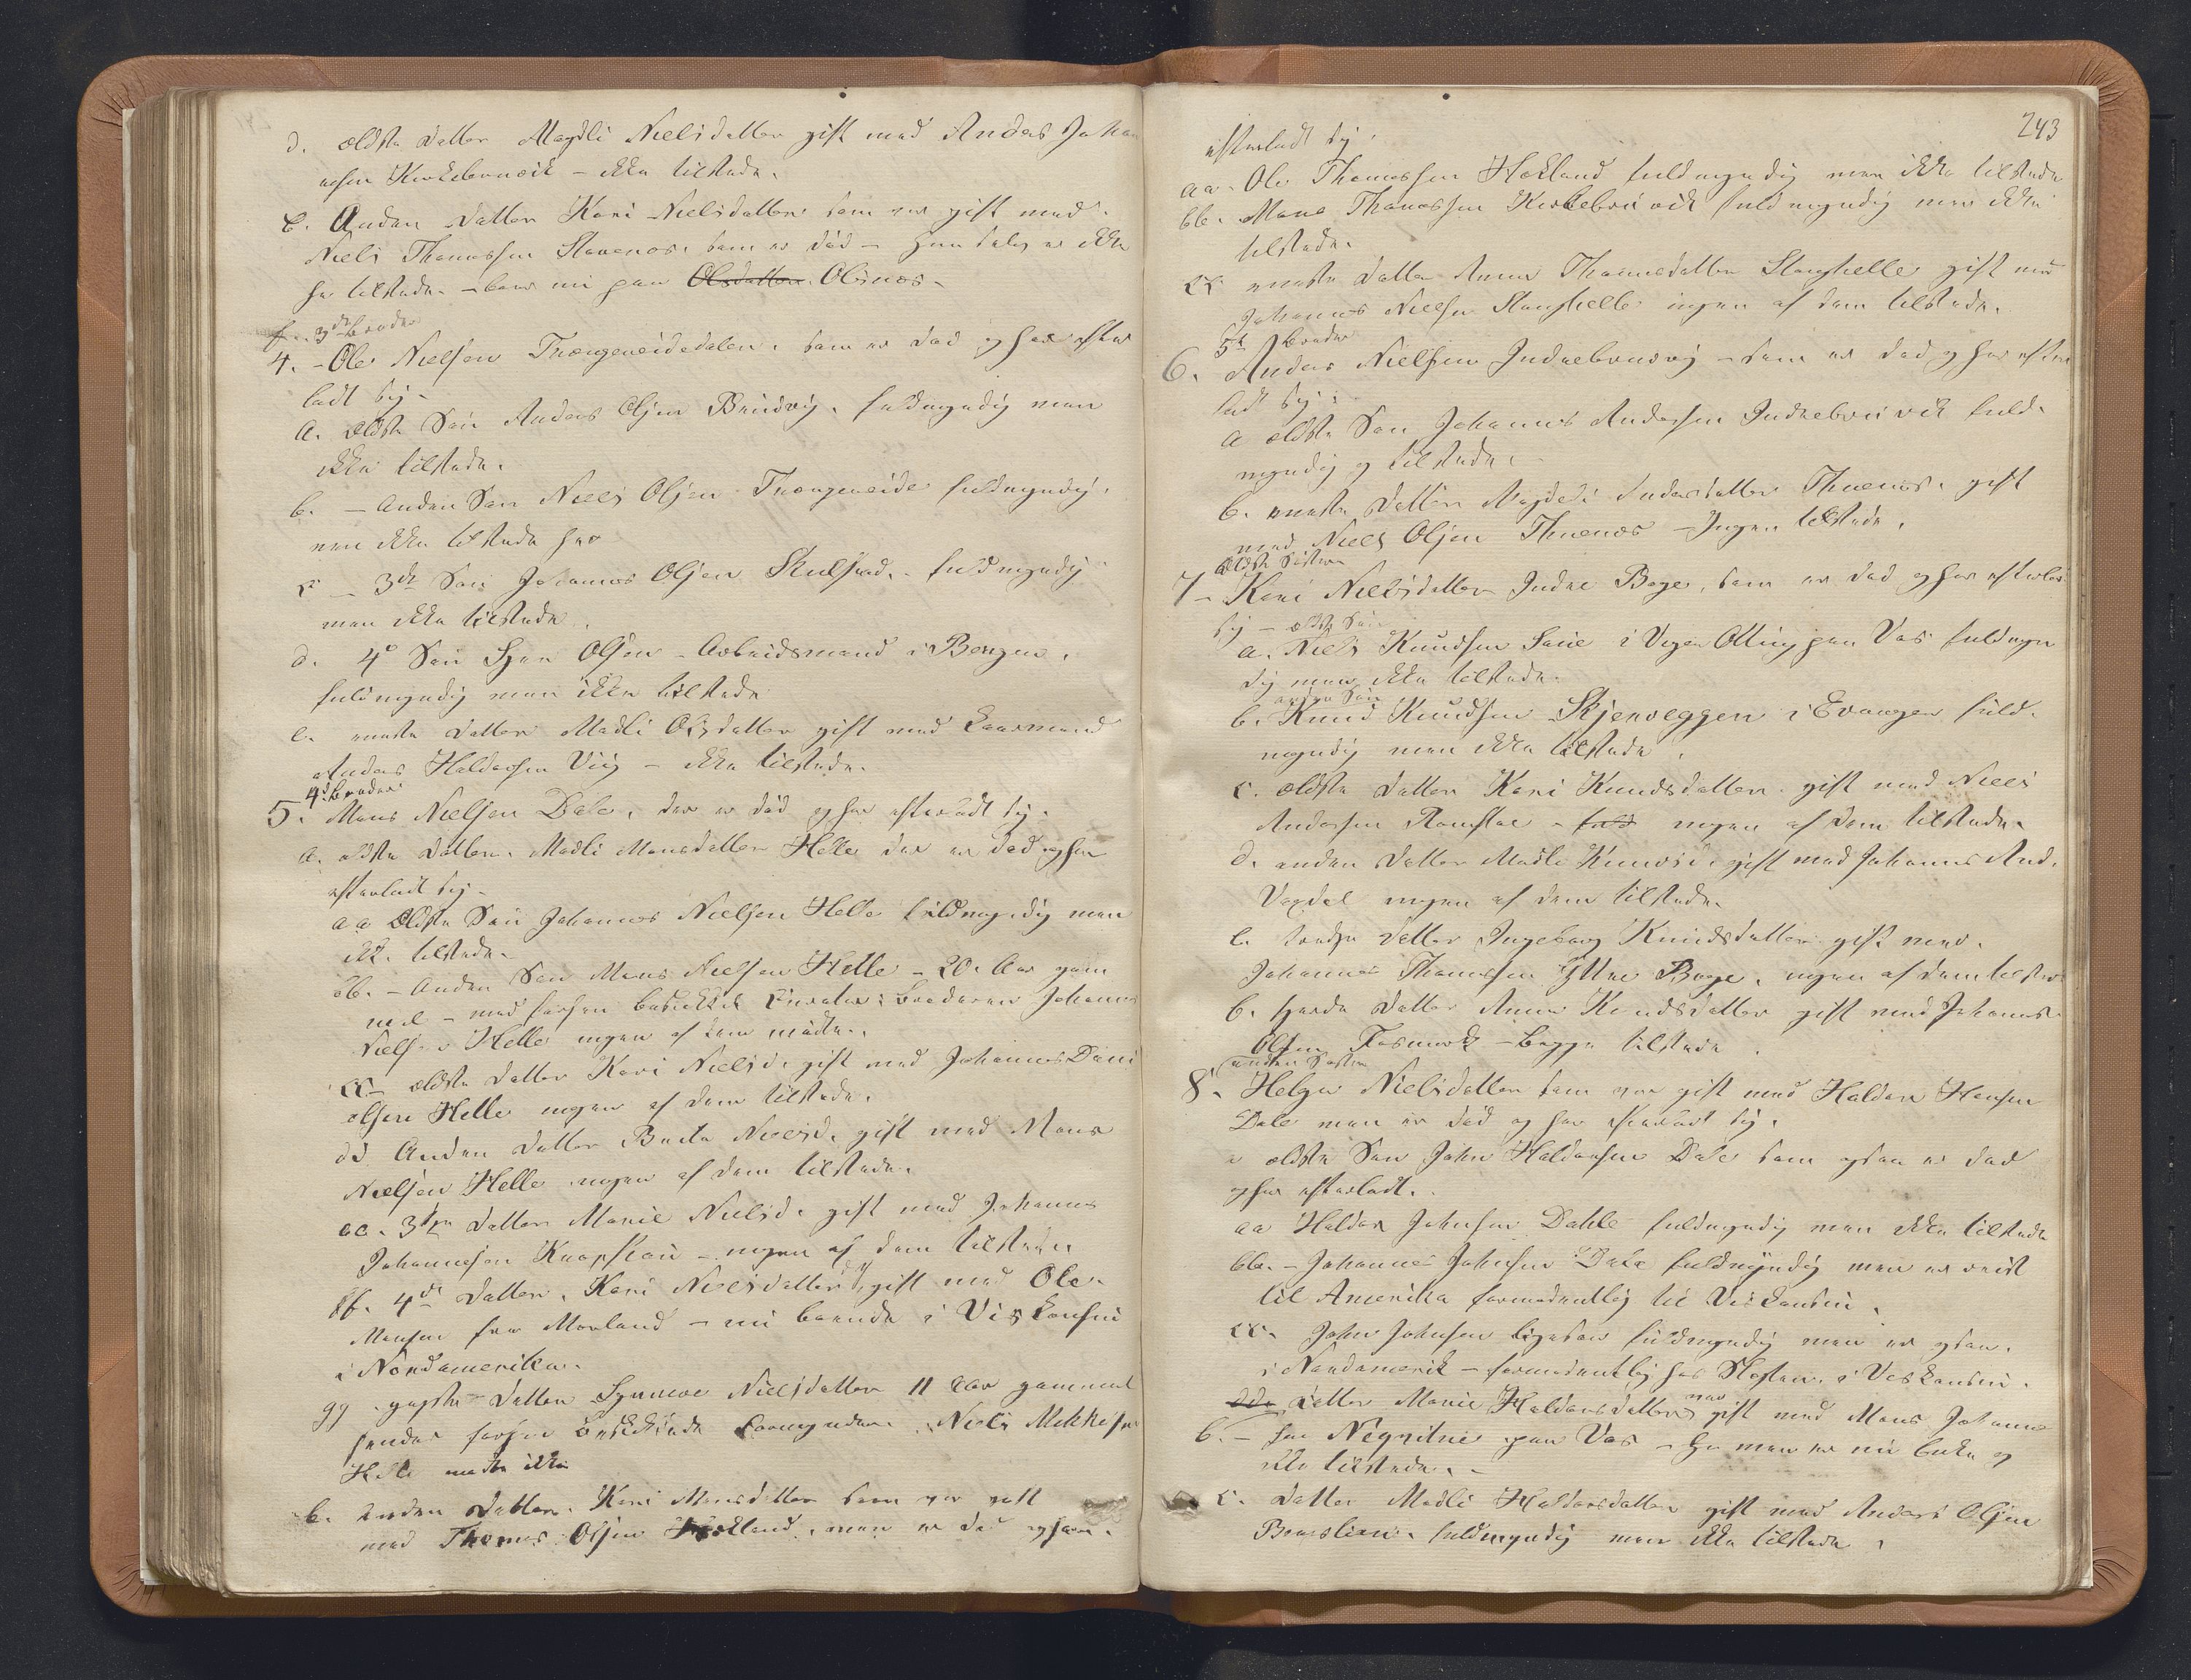 d. ældste Datter Magdli Nielsdatter gift med Anders Johan
nesen Kirkebruvik – ikke tilstede.
e. Anden Datter Kari Nielsdatter som var gift med
Niels Thomassen Stavenæs, som er død – hun selv er ikke
her tilstede – boer nu paa Olsdatter Olsnæs.
f. 3de broder
4. – Ole Nielsen Trængereidedalen, som er død og har efter
ladt sig –
a. ældste Søn Anders Olsen Bruvig, fuldmyndig men
ikke tilstede.
b. – Anden Søn Niels Olsen Trængereide fuldmyndig,
men ikke tilstede her
c – 3de Søn Johannes Olsen Skulstad, fuldmyndig
men ikke tilstede.
d. 4de Søn Olsen – Arbeidsmand i Bergen,
fuldmyndig men ikke tilstede
e. eneste Datter Madli Olsdatter gift med Kaarmand
Anders Haldorsen Viig – ikke tilstede.
4de broder
5. Mons Nielsen Dale, der er død og har efterladt sig.
a. ældste Datter Madli Monsdatter Helle der er død og har
efterladt sig –
aa Ældste Søn Johannes Nielsen Helle fuldmyndig men
ikke tilstede.
bb. – Anden Søn Mons Nielsen Helle – 20 Aar gam
mel – med beskikket Curator: Broderen Johannes
Nielsen Helle ingen af dem mødte.
cc – ældste Datter Kari Nielsd. gift med Johannes Dani
elsen Helle ingen af dem tilstede.
dd Anden Datter Nielsd. gift med Mons
Nielsen Helle ingen af dem tilstede.
ee. 3die Datter Marie Nielsd. gift med Johannes
Johannesen – ingen af dem tilstede
ff. 4de Datter, Kari Nielsdatter gift med Ole
Monsen fra Morland – nu boende i Viskonsin
i Nordamerika.
gg yngste Datter Synneve Nielsdatter 11 Aar gammel
hendes beskikkede Formynder Niels
Helle mødte ikke
b. anden Datter, Kari Monsdatter som var gift
med Thomas Olsen Hokland, men er død og har
243
efterladt sig:
aa. Ole Thomassen Hokland fuldmyndig men ikke tilstede
bb. Mons Thomassen Kirkebruvik fuldmyndig men ikke
tilstede.
cc eneste Datter Anna Thomasdatter Stanghelle gift med
Johannes Nielsen Stanghelle ingen af dem tilstede.
5te broder
6. Anders Nielsen Indrebruvig – som er død og har efter
ladt sig:
a ældste Søn Johannes Andersen Indrebruvik fuld
myndig og tilstede.
b. eneste Datter Magdeli Andersdatter Thuenæs, gift
med Niels Olsen Thuenæs – Ingen tilstede.
ældste Søster
7 – Kari Nielsdatter Indre Boge, som er død og har efterladt
sig – ældste Søn
a. Niels Knudsen i Otting paa Vos fuldmyn
dig men ikke tilstede.
anden Søn
b. Knud Knudsen Skjerveggen i Evanger fuld
myndig men ikke tilstede.
c. ældste Datter Kari Knudsdatter gift med Niels
Andersen – fuld ingen af dem tilstede.
d. anden Datter Madli Knudsd. gift med Johannes And.
Vaxdal ingen af dem tilstede.
e. tredje Datter Ingeborg Knudsdatter gift med
Johannes Thomassen Yttre Boge, ingen af dem tilstede
b. fjerde Datter Anna Knudsdatter gift med Johannes
Olsen Fosmark – begge tilstede.
anden Søster
8. Helga Nielsdatter som var gift med Haldor Hansen
Dale men er død og har efterladt sig.
a ældste Søn John Haldorsen Dale som ogsaa er død
og har efterladt.
aa Haldor Johnsen Dahle fuldmyndig men ikke tilstede
bb. – Johannes Johnsen Dale fuldmyndig men er reist
til Amerika formodentlig til Viskonsin.
cc. John Johnsen ligesaa fuldmyndig men er ogsaa
i Nordamerik – formodentlig i Viskonsin.
Datter Marie Haldorsdatter var gift med Mons Johanne
b. – sen Negvitne paa Vos – men er nu Enke og
ikke tilstede. –
c. Datter Madli Haldorsdatter gift med Anders Olsen
fuldmyndig men ikke tilstede.